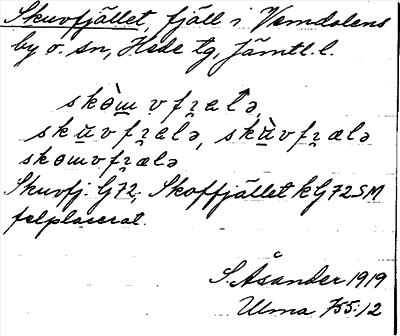 Skuvfjället, fjäll i Vemdalens
by o. sn, Hede tg, Jämtl. l.
skə̀m̲ vfɹ̯ælə,
sku̲vfɹ̯ælə, skù̲vfɹ̯ælə
skəmvfɹ̯ælə
Skuvfj. G72, Skoffjället kG72SM
felplacerat.
S. Åsander 1919
Ulma 755:12